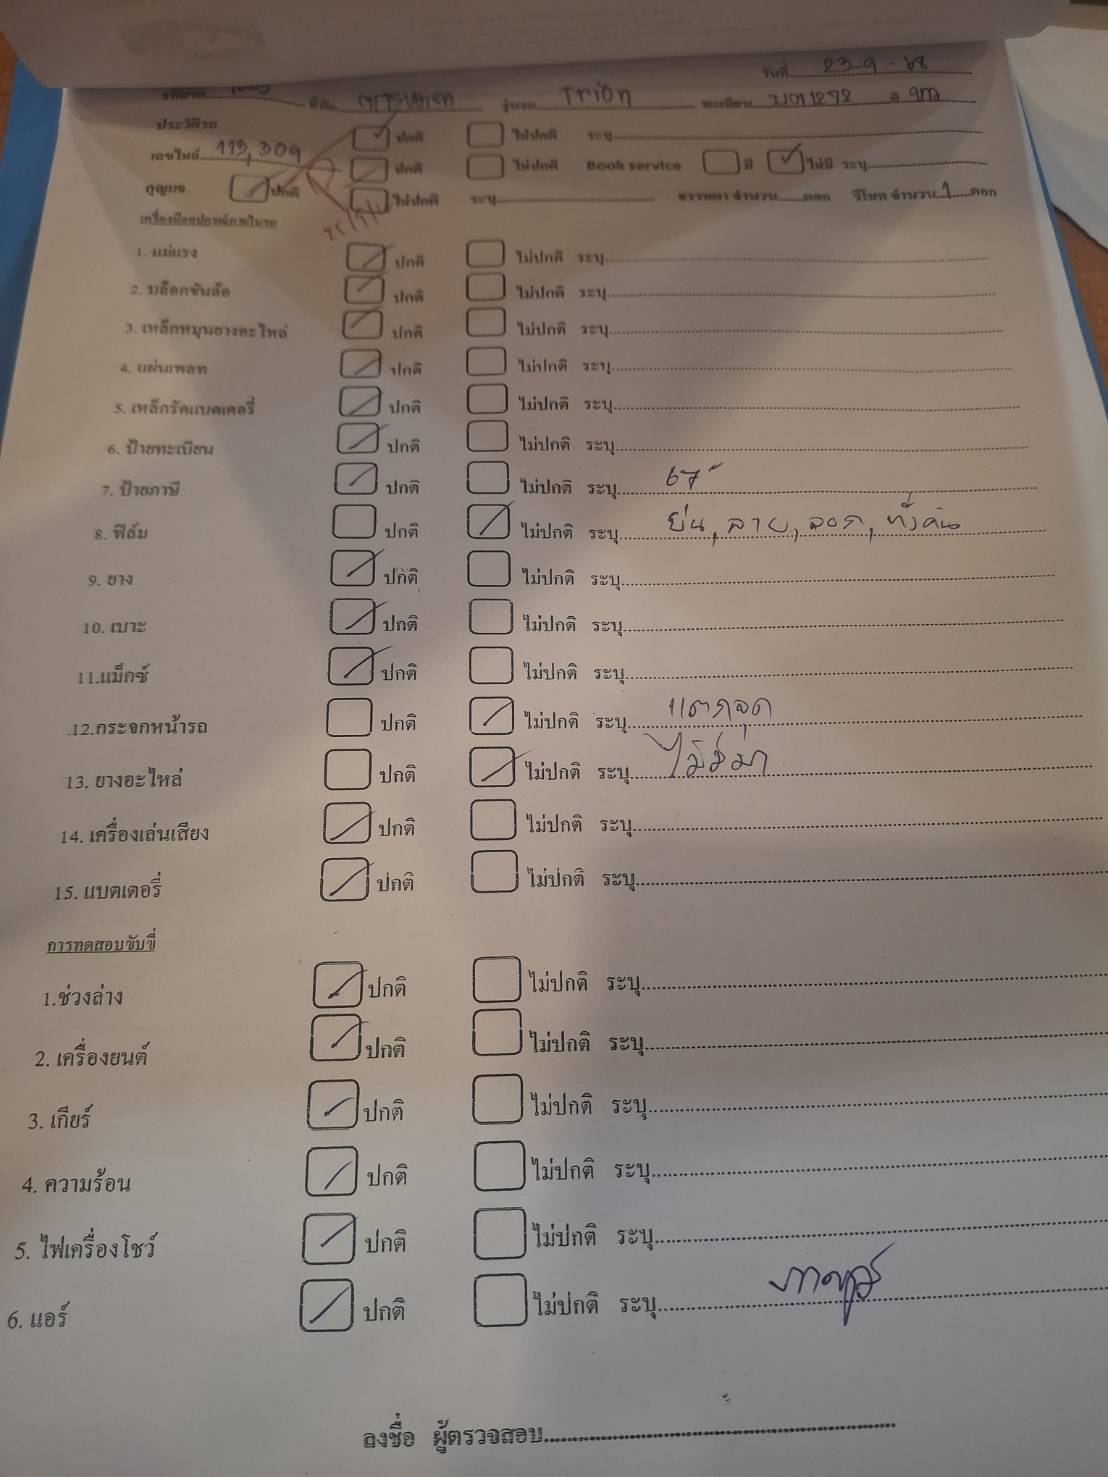 วันที่ 23-9-68
รหัสรถ ยี่ห้อ รุ่นรถ Trion ทะเบียน 1272 สี
ประวัติรถ ปกติ ไม่ปกติ ระบุ
เลขไมล์ 113,309 ปกติ ไม่ปกติ Book service มี ไม่มี ระบุ
กุญแจ ปกติ ไม่ปกติ ระบุ ธรรมดา จำนวน ดอก รีโมท จำนวน 1 ดอก
เครื่องมืออุปกรณ์ภายในรถ
1. แม่แรง ปกติ ไม่ปกติ ระบุ
2. บล็อกขันล้อ ปกติ ไม่ปกติ ระบุ
3. เหล็กหมุนยางอะไหล่ ปกติ ไม่ปกติ ระบุ
4. แผ่นเพลท ปกติ ไม่ปกติ ระบุ
5. เหล็กรัดแบตเตอรี่ ปกติ ไม่ปกติ ระบุ
6. ป้ายทะเบียน ปกติ ไม่ปกติ ระบุ
7. ป้ายภาษี ปกติ ไม่ปกติ ระบุ 67
8. ฟิล์ม ปกติ ไม่ปกติ ระบุ ย่น, ลาย, ลอก, ทั้งคัน
9. ยาง ปกติ ไม่ปกติ ระบุ
10. เบาะ ปกติ ไม่ปกติ ระบุ
11.แม็กซ์ ปกติ ไม่ปกติ ระบุ
12.กระจกหน้ารถ ปกติ ไม่ปกติ ระบุ แตกจุด
13. ยางอะไหล่ ปกติ ไม่ปกติ ระบุ ไม่มีมา
14. เครื่องเล่นเสียง ปกติ ไม่ปกติ ระบุ
15. แบตเตอรี่ ปกติ ไม่ปกติ ระบุ
การทดสอบขับขี่
1.ช่วงล่าง ปกติ ไม่ปกติ ระบุ
2. เครื่องยนต์ ปกติ ไม่ปกติ ระบุ
3. เกียร์ ปกติ ไม่ปกติ ระบุ
4. ความร้อน ปกติ ไม่ปกติ ระบุ
5. ไฟเครื่องโชว์ ปกติ ไม่ปกติ ระบุ
6. แอร์ ปกติ ไม่ปกติ ระบุ
ลงชื่อ ผู้ตรวจสอบ